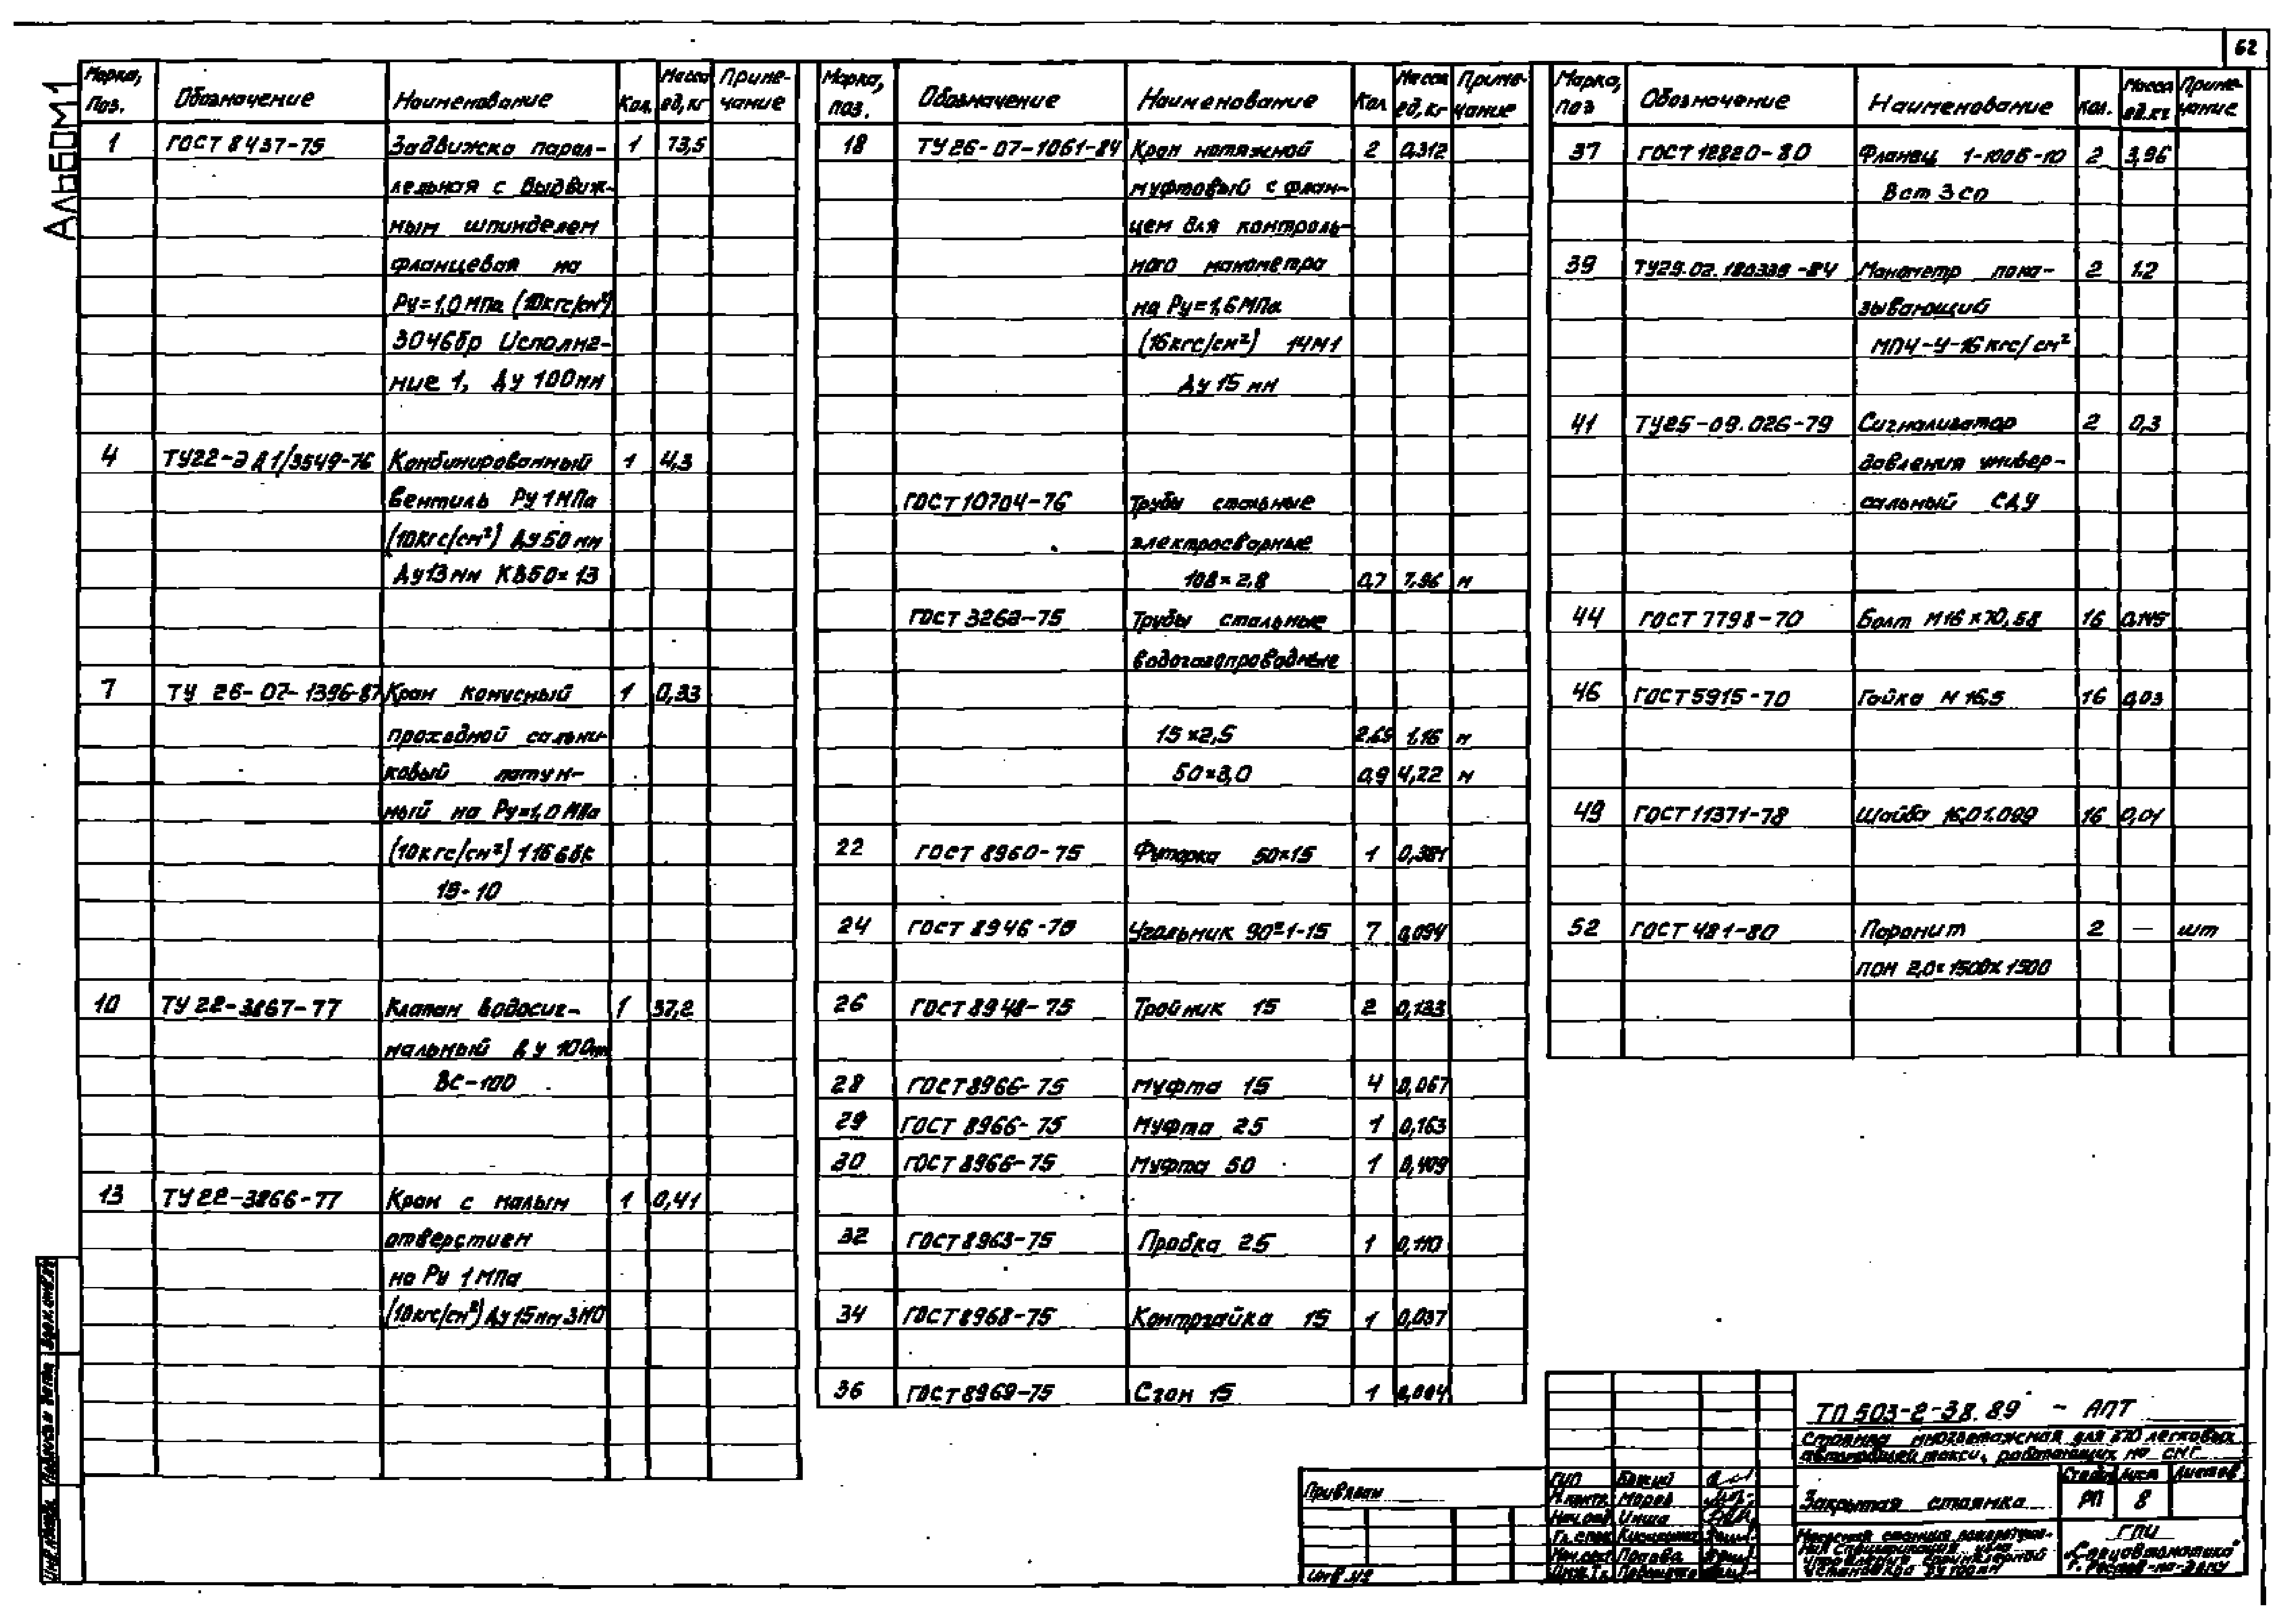 62
АЛЬБОМ 1
Марка, Поз. Обозначение Наименование Кол. Масса ед, кг Примечание
1 ГОСТ 8437-75 Задвижка парал- 1 73,5
лельная с выдвиж-
ным шпинделем
фланцевая на
Ру=1,0 МПа (10кгс/см²)
30ч6бр Исполне-
ние 1, Ду 100мм
4 ТУ22-ЭД1/3549-76 Комбинированный 1 4,3
вентиль Ру 1 МПа
(10кгс/см²) Ду 50 мм
Ду13мм КВ50×13
7 ТУ 26-07-1396-87 Кран конусный 1 0,33
проходной сальни-
ковый латун-
ный на Ру=1,0 МПа
(10кгс/см²) 11Б6бк
15-10
10 ТУ 22-3867-77 Клапан водосиг- 1 37,2
нальный Ду 100мм
ВС-100
13 ТУ 22-3866-77 Кран с малым 1 0,41
отверстием
на Ру 1 МПа
(10кгс/см²) Ду 15мм ЗМО
Марка, поз. Обозначение Наименование Кол Масса ед, кг Примечание
18 ТУ26-07-1061-84 Кран натяжной 2 0,312
муфтовый с флан-
цем для контроль-
ного манометра
на Ру=1,6 МПа
(16кгс/см²) 14М1
Ду 15 мм
ГОСТ 10704-76 Трубы стальные
электросварные
108×2,8 0,7 7,96 м
ГОСТ 3262-75 Трубы стальные
водогазопроводные
15×2,5 2,69 1,16 м
50×3,0 0,9 4,22 м
22 ГОСТ 8960-75 Футорка 50×15 1 0,381
24 ГОСТ 8946-75 Угольник 90°-1-15 7 0,094
26 ГОСТ 8948-75 Тройник 15 2 0,133
28 ГОСТ 8966-75 Муфта 15 4 0,067
29 ГОСТ 8966-75 Муфта 25 1 0,163
30 ГОСТ 8966-75 Муфта 50 1 0,409
32 ГОСТ 8963-75 Пробка 25 1 0,110
34 ГОСТ 8968-75 Контргайка 15 1 0,037
36 ГОСТ 8969-75 Сгон 15 1
Марка, поз Обозначение Наименование Кол. Масса ед.кг Примечание
37 ГОСТ 12820-80 Фланец 1-100Б-10 2 3,96
Вст 3сп
39 ТУ25.02.180335-84 Манометр пока- 2 1.2
зывающий
МП4-У-16 кгс/см²
41 ТУ25-09.026-79 Сигнализатор 2 0,3
давления универ-
сальный СДУ
44 ГОСТ 7798-70 Болт М16×70,58 16 0,145
46 ГОСТ 5915-70 Гайка М 16,5 16 0,03
49 ГОСТ 11371-78 Шайба 16.01.099 16 0,01
52 ГОСТ 481-80 Паронит 2 — шт
ПОН 2,0×1500×1500
ТП 503-2-38.89 - АПТ
Стоянка многоэтажная для 270 легковых
автомобилей такси, работающих на СНГ
Стадия Лист Листов
Закрытая стоянка РП 8
Насосная станция пожаротуше-
ния Спецификация узла
управления спринклерной
установкой Ду 100мм
ГПИ
"Спецавтоматика"
г. Ростов-на-Дону
ГИП
Н.контр. Мороз
Нач.отд
Гл.спец
Нач.сект. Попова
Привязан
Инв.№
Взам.инв.№
Подпись и дата
Инв.№подл.